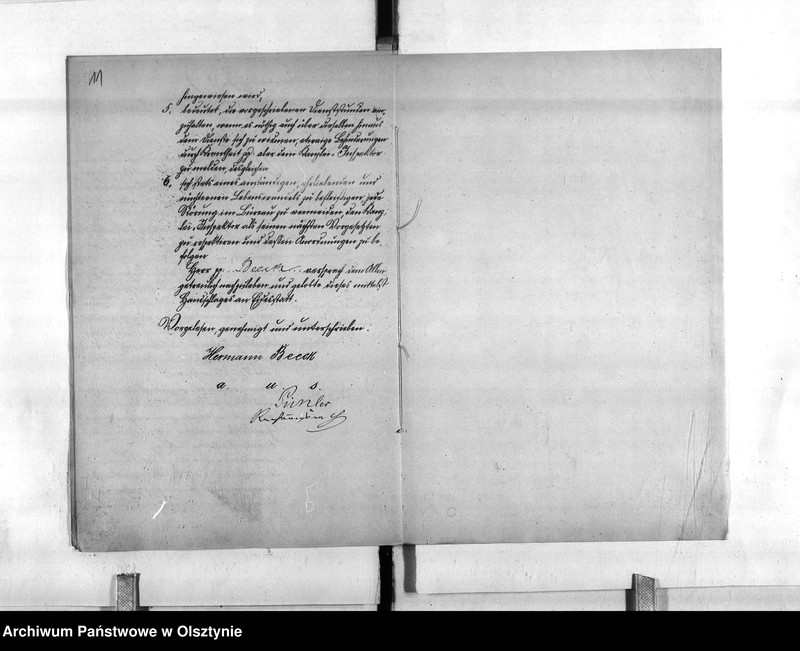 11
hingewiesen wird,
5. bedeutet, die vorgeschriebenen Dienststunden ein-
zuhalten, wenn es nöthig auch über dieselben hinaus
dem Dienste sich zu widmen, etwaige Behinderungen
durch Krankheit pp. aber dem Kanzlei-Inspektor
zu melden, desgleichen
6. sich stets eines anständigen, und
nüchternen Lebenswandels zu befleißigen, jede
Störung im Büreau zu vermeiden, den Kanz-
lei-Inspektor als seinen nächsten Vorgesetzten
zu respektiren und dessen Anordnungen zu be-
folgen
Herr pp. Beeck versprach dem Allen
getreulich nachzuleben und gelobte dieses mittelst
Handschlages an Eidesstatt.
Vorgelesen, genehmigt und unterschrieben:
Hermann Beeck
a. u. s.
Archiwum Państwowe w Olsztynie